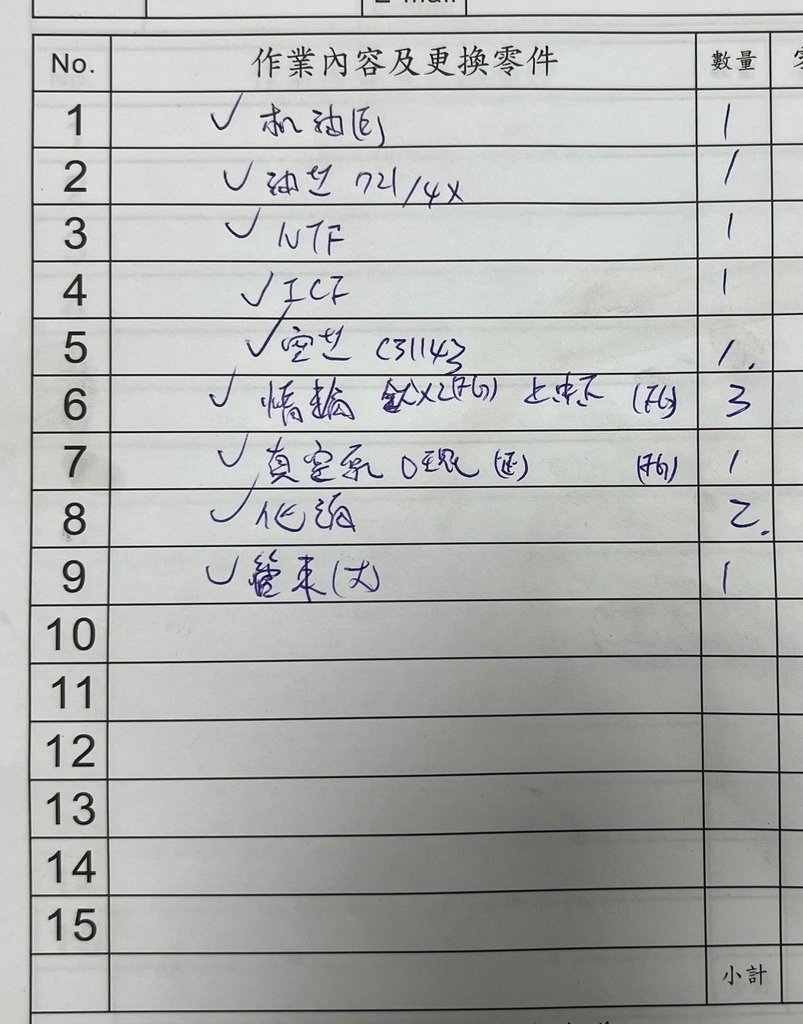 No. 作業內容及更換零件 數量
1 ✓ 机油(E) 1
2 ✓ 油芯 721/4X 1
3 ✓ NTF 1
4 ✓ ICF 1
5 ✓ 空芯 C31143 1.
6 ✓ 惰輪 X2(FG) 上中下 (FG) 3
7 ✓ 真空泵 O環 (正) (FG) 1
8 ✓ 化油 2.
9 ✓ 管束(大) 1
10
11
12
13
14
15
小計